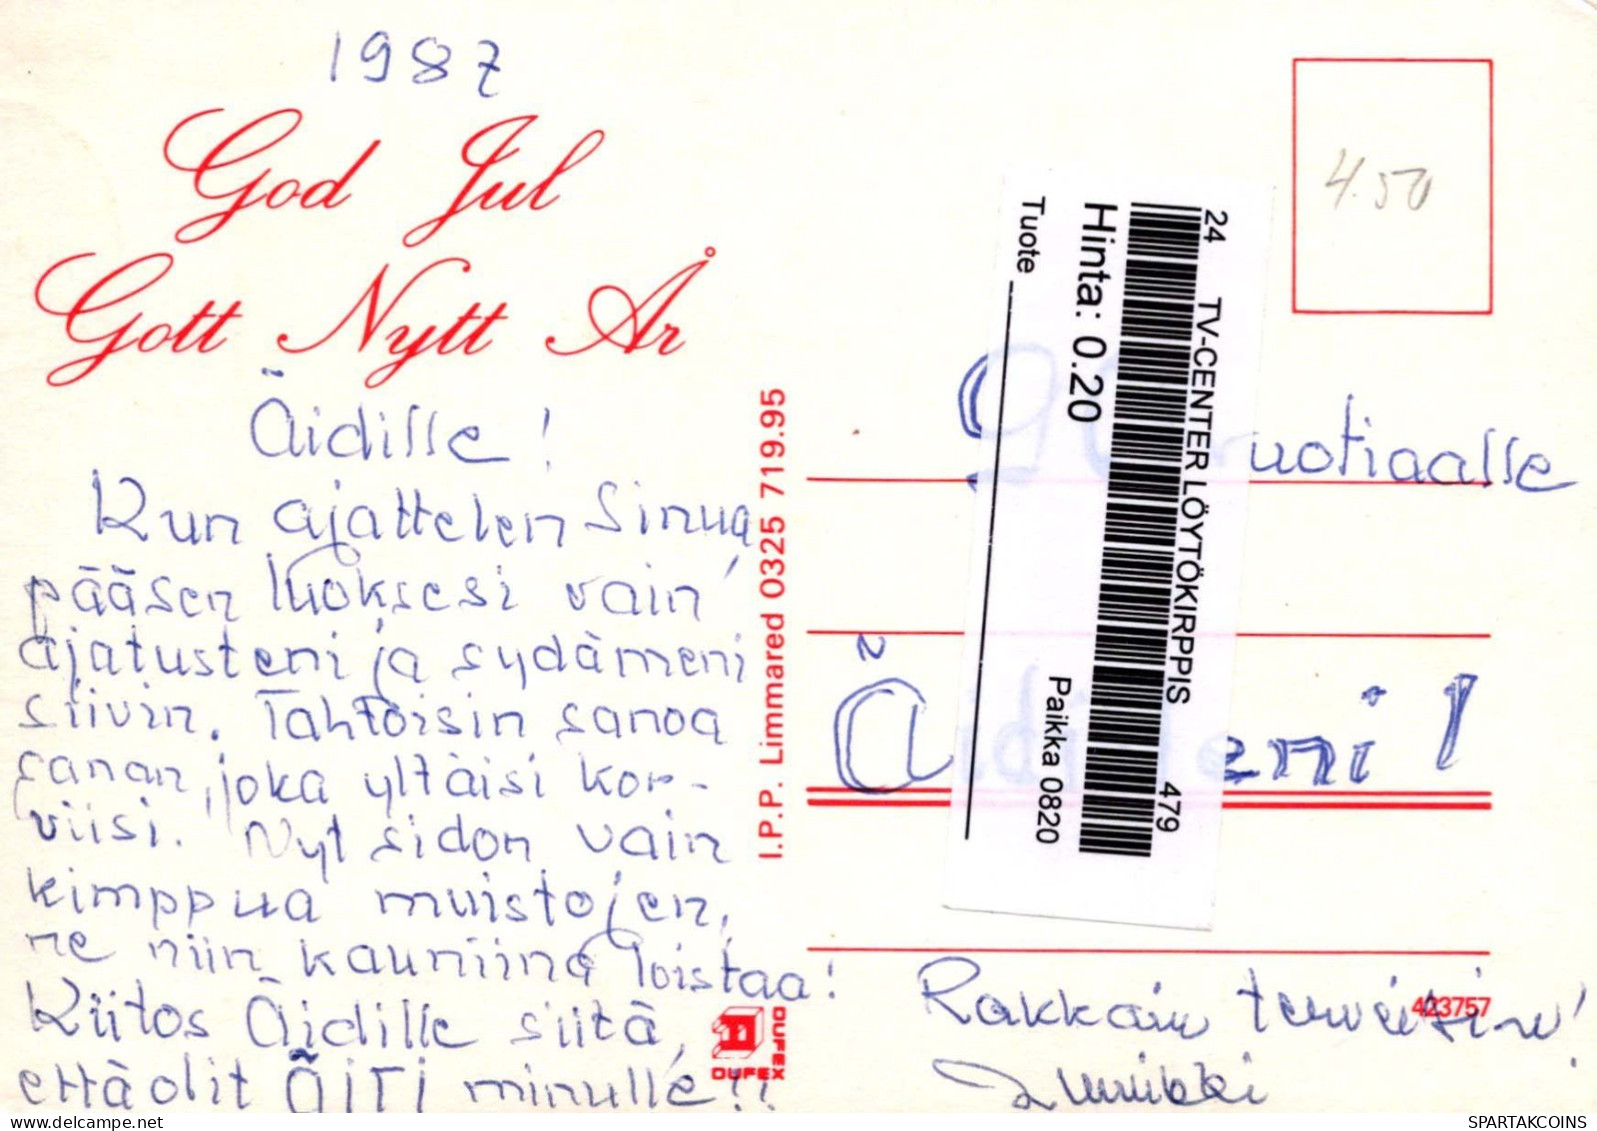 1987
God Jul
Gott Nytt År
Äidille!
Kun ajattelen Sinua
pääsen luoksesi vain
ajatusteni ja sydämeni
siivin. Tahtoisin sanoa
sanan, joka yltäisi kor-
viisi. Nyt sidon vain
kimppua muistojen,
ne niin kauniina loistaa!
Kiitos Äidille siitä,
että olit ÄITI minulle!!
I.P.P. Limmared 0325 719.95
DUFEX
DUFEX
4.50
24 TV-CENTER LÖYTÖKIRPPIS 479
Hinta: 0.20
Paikka 0820
Tuote
90 uotiaalle
Äidilleni!
423757
Rakkain terveisin!
SPARTAKCOINS